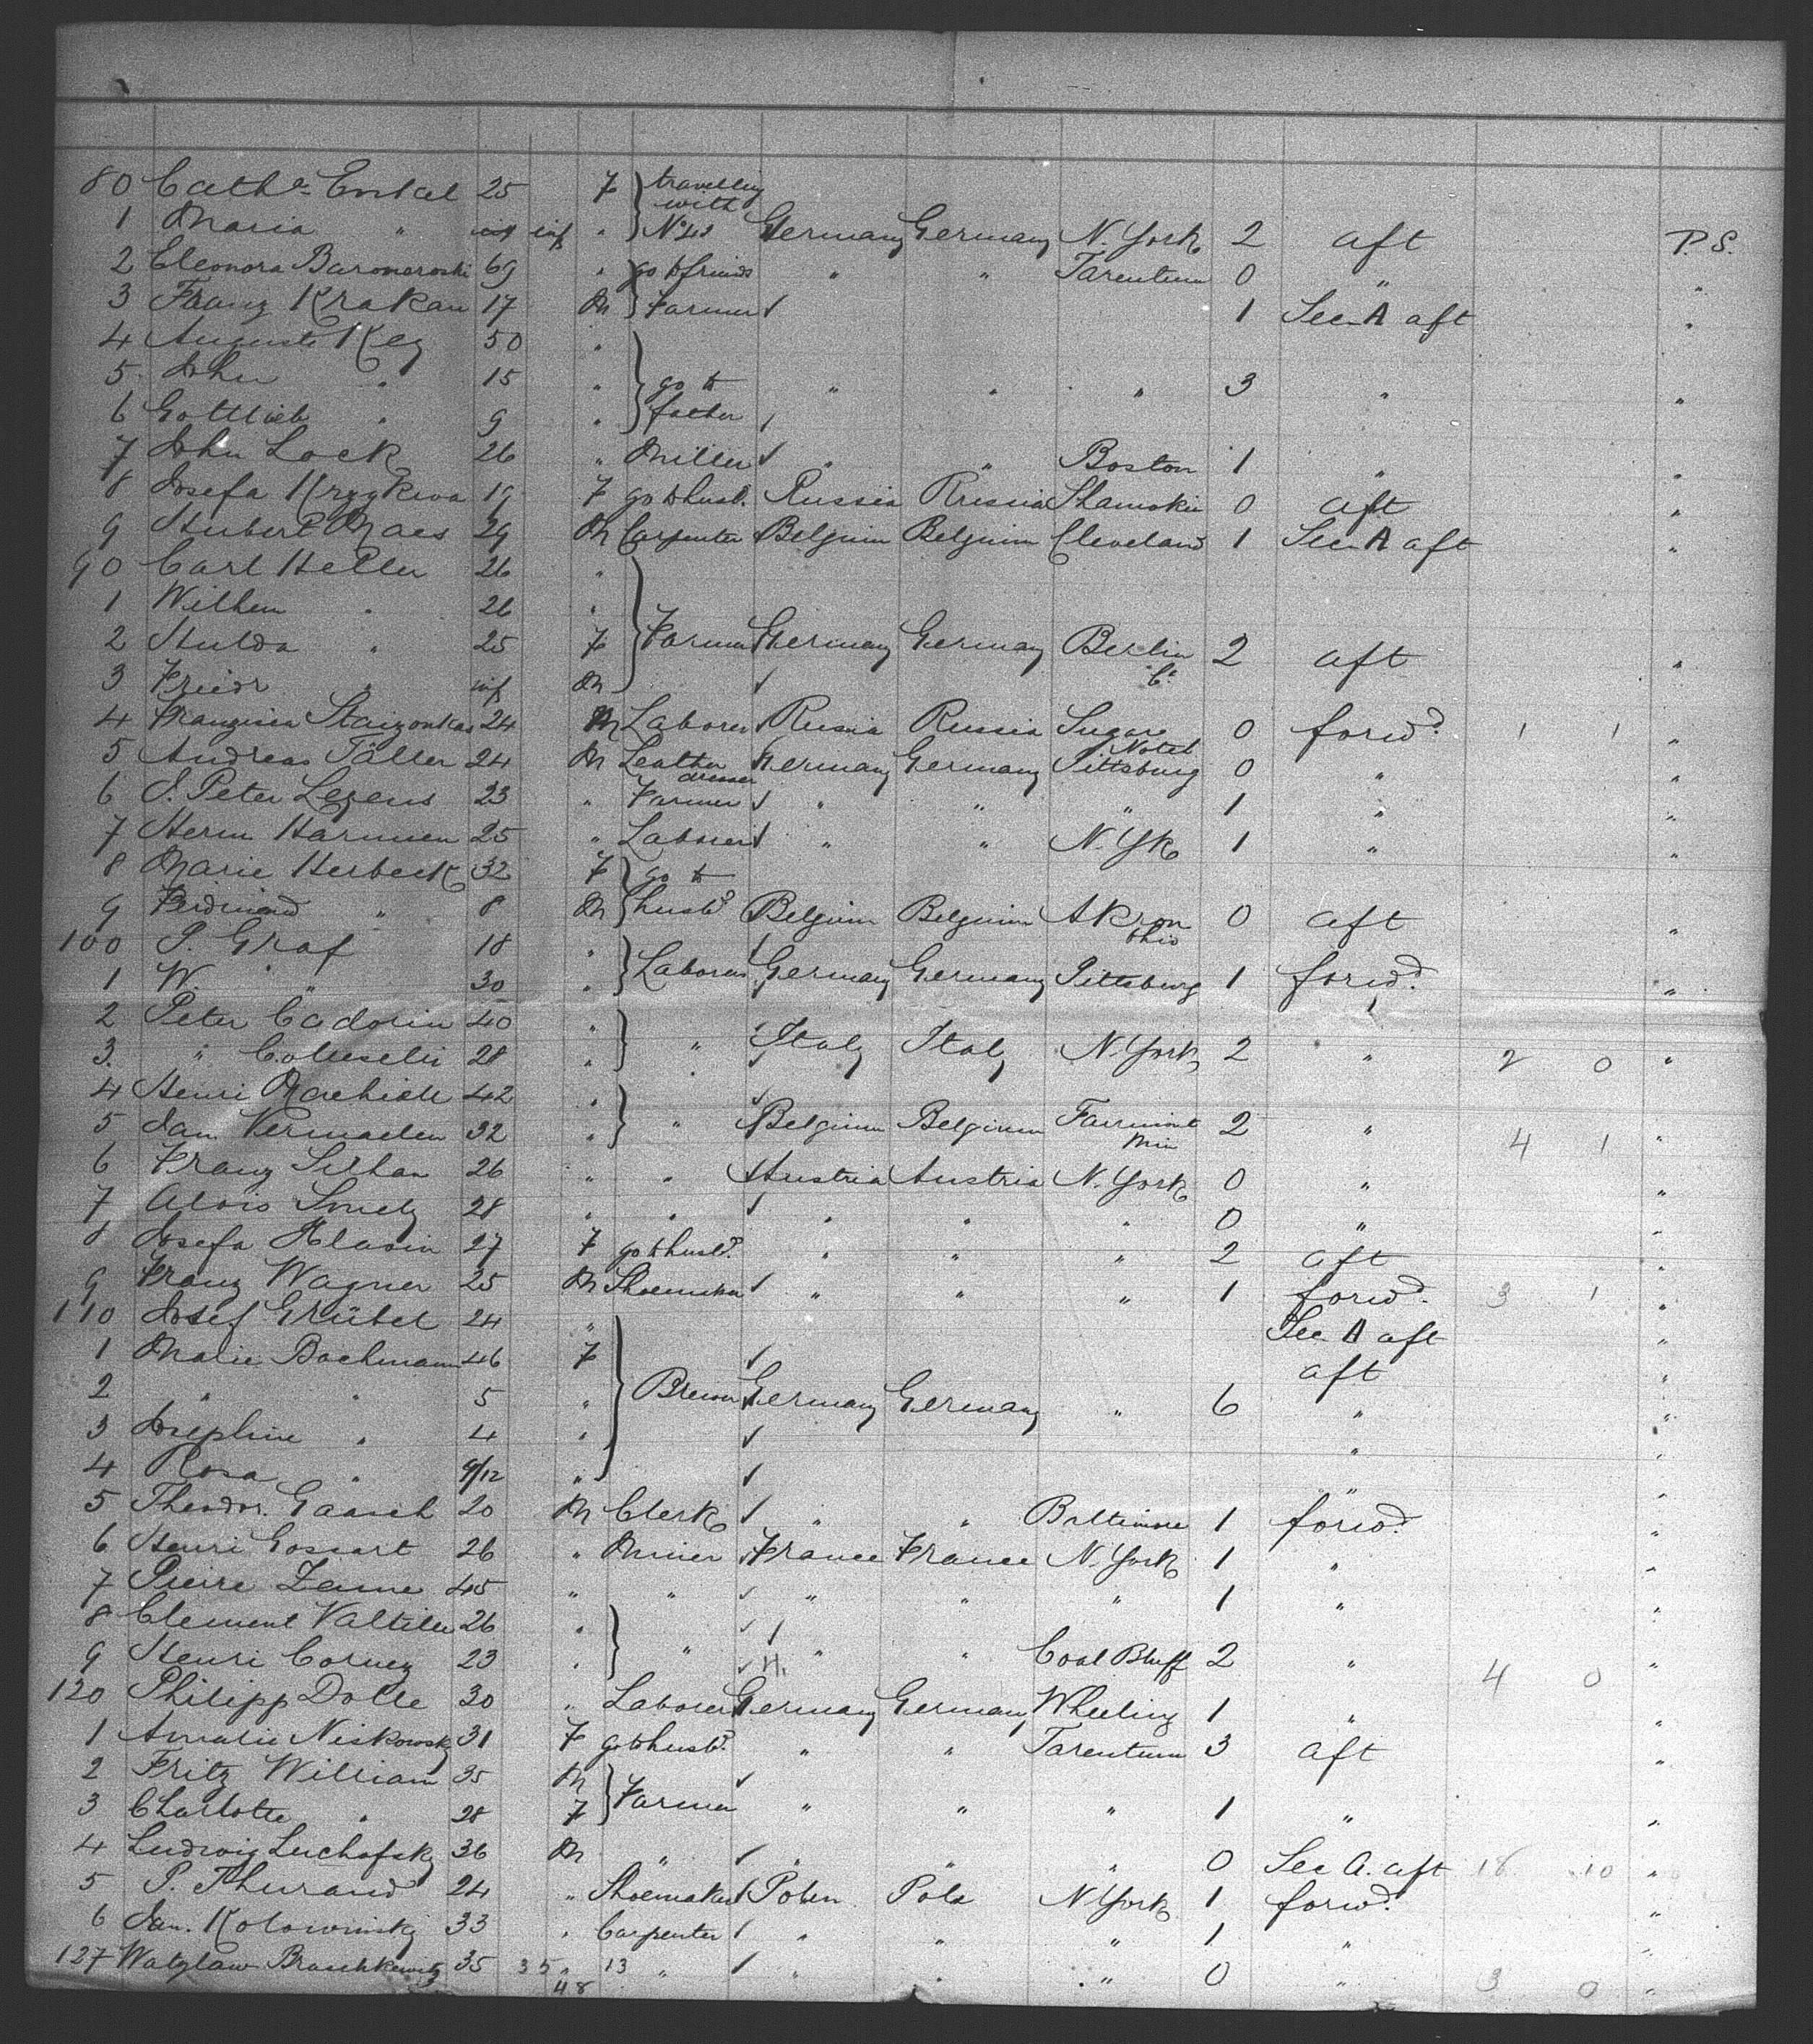 80 Cath^a Enkel 25 F travelling with
1 Maria " inf inf " No 42 Germany Germany N. York 2 aft P.S.
2 Eleonora 69 " go to friends " " Tarentum 0 " "
3 Franz Krakau 17 M Farmer 1 Sec A aft "
4 August Keg 50 "
5 John " 15 " go to " " " 3 " "
6 Gottlieb " 9 " father
7 John Lock 26 " Miller " " Boston 1 " "
8 Josefa 19 F go to husb. Russia Russia Shamokin 0 aft "
9 Hubert Maes 29 M Carpenter Belgium Belgium Cleveland 1 Sec A aft "
90 Carl Heller 26 "
1 Wilhem " 26 "
2 Hulda " 25 F Farmer Germany Germany Berlin 2 aft "
3 Friedr " inf M Ct
4 24 M Laborer Russia Russia Sugar Notch 0 forwd. 1 1 "
5 Andreas Täller 24 M Leather dresser Germany Germany Pittsburg 0 " "
6 J. Peter 23 " Farmer " " " 1 " "
7 Herm Harmsen 25 " Laborer " " N. Yk 1 " "
8 Marie Herbeck 32 F go to
9 Ferdinand " 8 M husbd Belgium Belgium Akron Ohio 0 aft "
100 P. Graf 18 "
1 W. " 30 " Laborers Germany Germany Pittsburg 1 forwd. "
2 Peter Cadorin 40 "
3 " 28 " " Italy Italy N. York 2 " 2 0 "
4 Henri 42 "
5 Jan Vermaelen 32 " " Belgium Belgium Fairmont Min 2 " 4 1 "
6 Franz 26 " " Austria Austria N. York 0 " "
7 Alois 28 " " " " " 0 " "
8 Josefa Hlavin 27 F go to husbd. " " " 2 aft "
9 Franz Wagner 25 M Shoemaker " " " 1 forwd. 3 1 "
110 Josef Grübel 24 " Sec A aft "
1 Malie Bachmann 46 F aft "
2 " " 5 " Brewer Germany Germany " 6 " "
3 Josephine " 4 " " "
4 Rosa " 9/12 " " "
5 Theodor. Gaasch 20 M Clerk " " Baltimore 1 forwd. "
6 Henri Gossart 26 " Miner France France N. York 1 " "
7 Pierre 45 " " " " " 1 " "
8 Clement 26 "
9 Henri Cornez 23 " " H. " " Coal Bluff 2 " 4 0 "
120 Philipp Dolle 30 " Laborer Germany Germany Wheeling 1 " "
1 Amalie Niskowsky 31 F go to husbd. " " Tarentum 3 aft "
2 Fritz William 35 M
3 Charlotte " 28 F Farmer " " " 1 " "
4 Ludwig Luchofsky 36 M " " " " 0 Sec A. aft 18 10 "
5 P. Thurand 24 " Shoemaker Polen Pola N York 1 forwd. "
6 Jan. Kolowinsky 33 " Carpenter " " " 1 " "
127 Watzlaw 35 35 " 13 " " " " 0 " 3 0 "
48